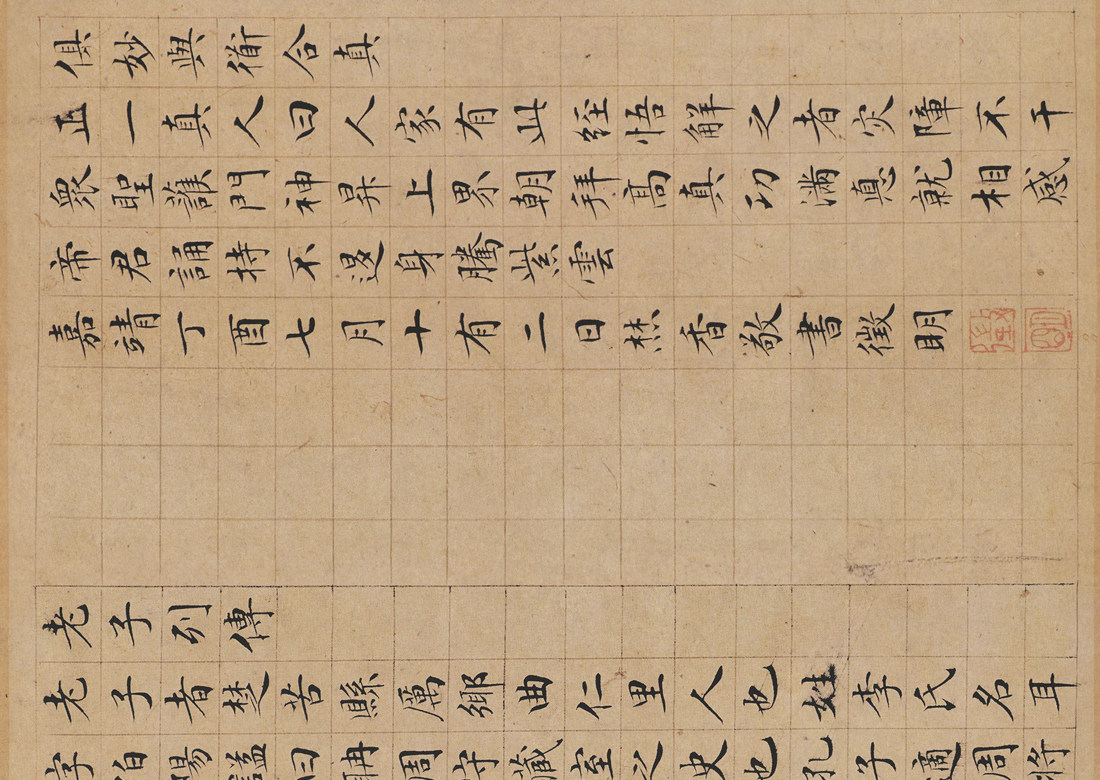 俱妙與衜合真
正一真人曰人家有此經悟解之者灾障不干
衆聖護門神昇上界朝拜高真功滿悳就相感
帝君誦持不退身騰紫雲
嘉靖丁酉七月十有二日焚香敬書徵明
老子列傳
老子者楚苦縣厲鄉曲仁里人也姓李氏名耳
字伯陽謚曰耼周守藏室之史也孔子適周將